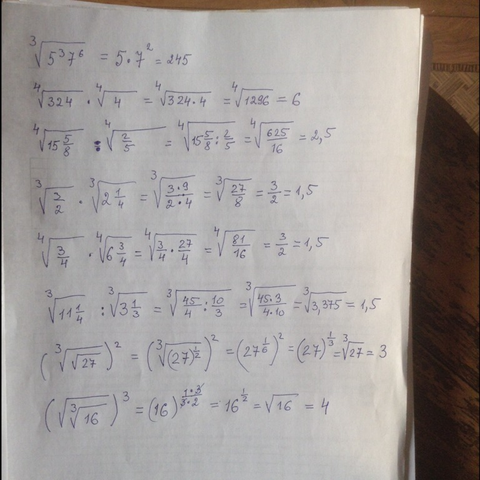 ∛(5³7⁶) = 5·7² = 245
∜324 · ∜4 = ∜(324·4) = ∜1296 = 6
∜(15 5/8) : ∜(2/5) = ∜(15 5/8 : 2/5) = ∜(625/16) = 2,5
∛(3/2) · ∛(2 1/4) = ∛((3·9)/(2·4)) = ∛(27/8) = 3/2 = 1,5
∜(3/4) · ∜(6 3/4) = ∜(3/4 · 27/4) = ∜(81/16) = 3/2 = 1,5
∛(11 1/4) : ∛(3 1/3) = ∛(45/4 : 10/3) = ∛((45·3)/(4·10)) = ∛(3,375) = 1,5
(∛(√27))² = (∛((27)^(1/2)))² = (27^(1/6))² = (27)^(1/3) = ∛27 = 3
(√(∛16))³ = (16)^((1·3)/(3·2)) = 16^(1/2) = √16 = 4